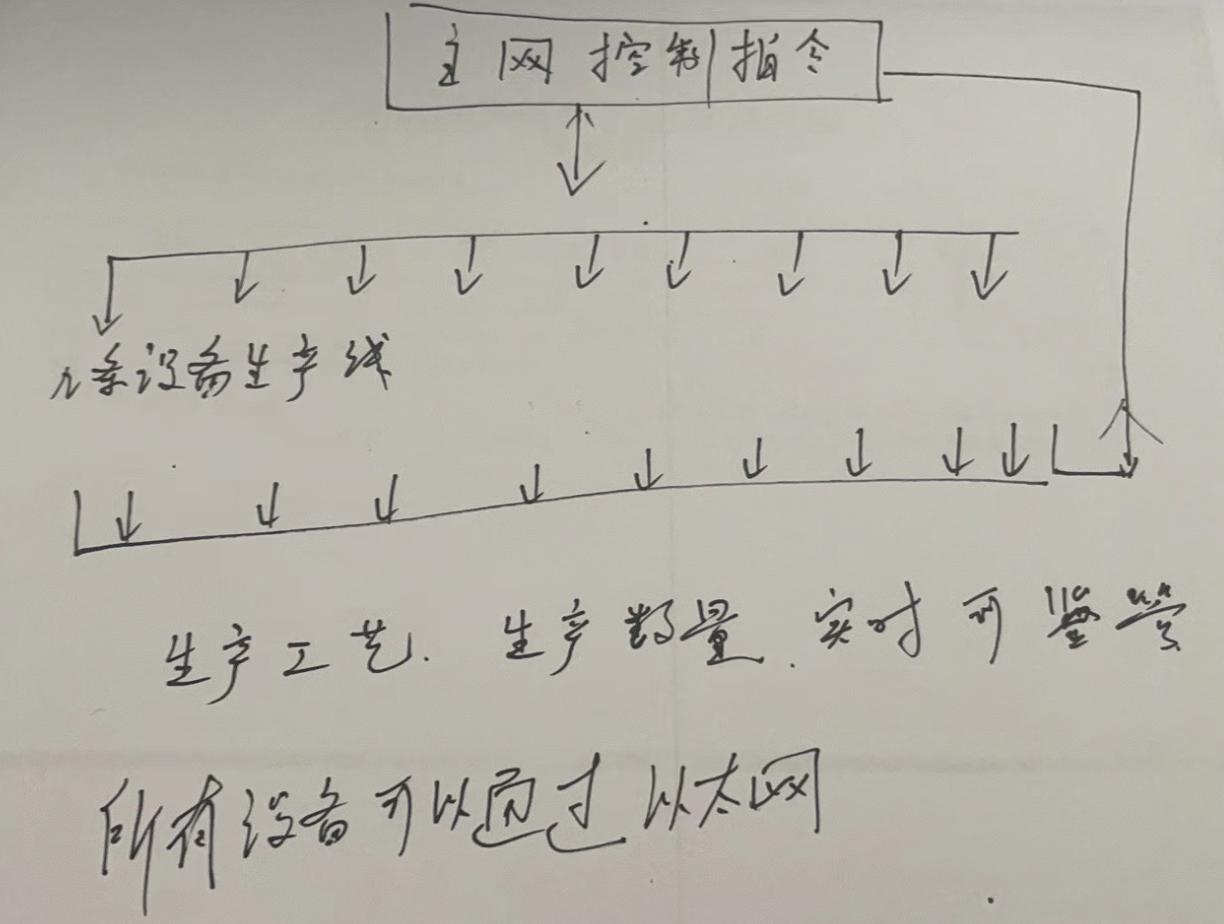 主网控制指令
n条设备生产线
生产工艺. 生产数量. 实时可监管
所有设备可以通过以太网